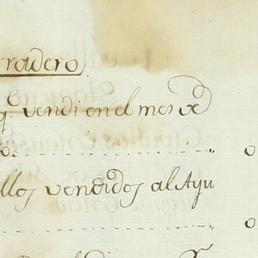 rradero
q.e vendi en el mes de
o.
llos vendidos al Ayu